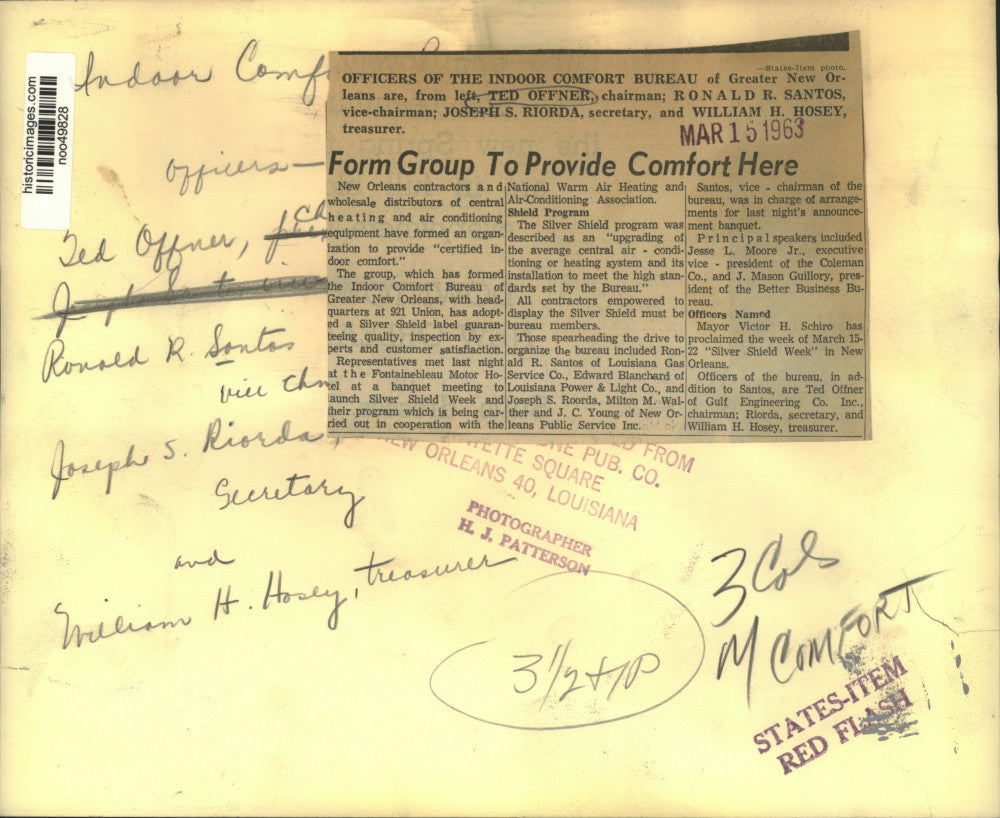 historicimages.com
noo49828
Indoor Comf
officers—
Ted Offner,
Ronald R. Santos
vice chm
Joseph S. Riorda,
Secretary
and
William H. Hosey, treasurer
—States-Item photo.
OFFICERS OF THE INDOOR COMFORT BUREAU of Greater New Or-
leans are, from left, TED OFFNER, chairman; RONALD R. SANTOS,
vice-chairman; JOSEPH S. RIORDA, secretary, and WILLIAM H. HOSEY,
treasurer.
MAR 15 1963
Form Group To Provide Comfort Here
New Orleans contractors and
wholesale distributors of central
heating and air conditioning
equipment have formed an organ-
ization to provide "certified in-
door comfort."
The group, which has formed
the Indoor Comfort Bureau of
Greater New Orleans, with head-
quarters at 921 Union, has adopt-
ed a Silver Shield label guaran-
teeing quality, inspection by ex-
perts and customer satisfaction.
Representatives met last night
at the Fontainebleau Motor Ho-
el at a banquet meeting to
aunch Silver Shield Week and
their program which is being car-
ried out in cooperation with the
National Warm Air Heating and
Air-Conditioning Association.
Shield Program
The Silver Shield program was
described as an "upgrading of
the average central air - condi-
tioning or heating system and its
installation to meet the high stan-
dards set by the Bureau."
All contractors empowered to
display the Silver Shield must be
bureau members.
Those spearheading the drive to
organize the bureau included Ron-
ald R. Santos of Louisiana Gas
Service Co., Edward Blanchard of
Louisiana Power & Light Co., and
Joseph S. Roorda, Milton M. Wal-
ther and J. C. Young of New Or-
leans Public Service Inc.
Santos, vice - chairman of the
bureau, was in charge of arrange-
ments for last night's announce-
ment banquet.
Principal speakers included
Jesse L. Moore Jr., executive
vice - president of the Coleman
Co., and J. Mason Guillory, pres-
ident of the Better Business Bu-
reau.
Officers Named
Mayor Victor H. Schiro has
proclaimed the week of March 15-
22 "Silver Shield Week" in New
Orleans.
Officers of the bureau, in ad-
dition to Santos, are Ted Offner
of Gulf Engineering Co. Inc.,
chairman; Riorda, secretary, and
William H. Hosey, treasurer.
FROM
PUB. CO.
SQUARE
NEW ORLEANS 40, LOUISIANA
PHOTOGRAPHER
H. J. PATTERSON
3 Cols
M COMFORT
3 1/2 + 1P
STATES-ITEM
RED FLASH